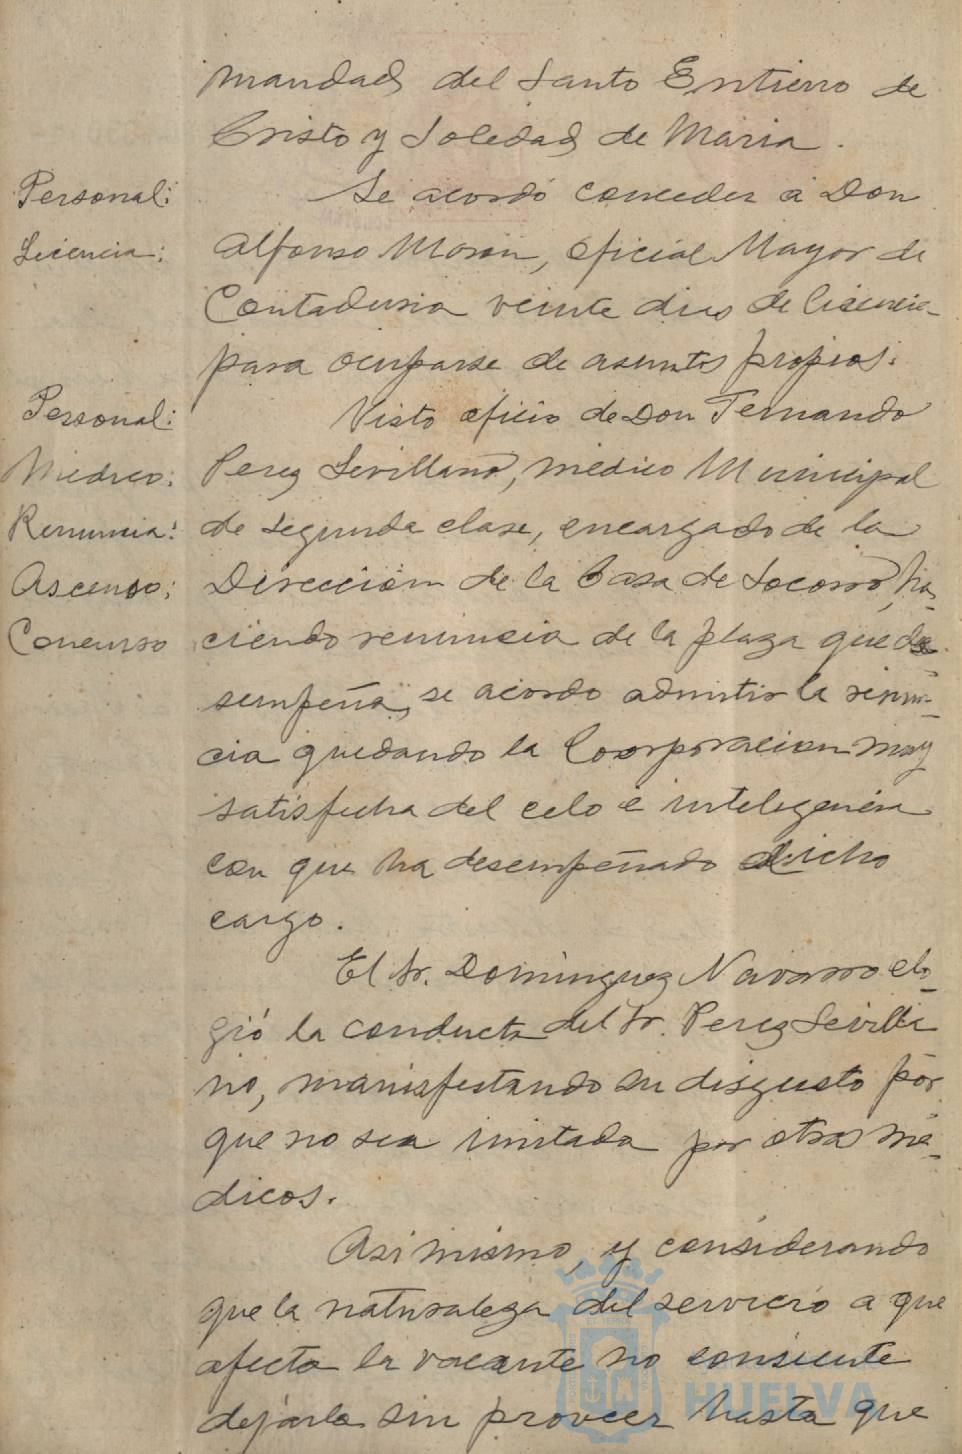 mandad del Santo Entierro de
Cristo y Soledad de Maria.
Personal:
Licencia:
Se acordó conceder á Don
Alfonso Moron, oficial Mayor de
Contaduria veinte dias de licencia
para ocuparse de asuntos propios.
Personal:
Medico:
Renuncia:
Ascenso:
Concurso
Visto oficio de Don Fernando
Perez Sevillano, médico Municipal
de segunda clase, encargado de la
Dirección de la Casa de Socorro, ha-
ciendo renuncia de la plaza que de-
sempeña, se acordo admitir la renun-
cia quedando la Coorporacion muy
satisfecha del celo é inteligencia
con que ha desempeñado dicho
cargo.
El Sr. Dominguez Navarro elo-
gió la conducta del Sr. Perez Sevilla
no, manisfestando su disgusto por
que no sea imitada por otros mé-
dicos.
Asi mismo, y considerando
que la naturaleza del servicio a que
afecta la vacante no consiente
dejarla sin proveer hasta que
HUELVA